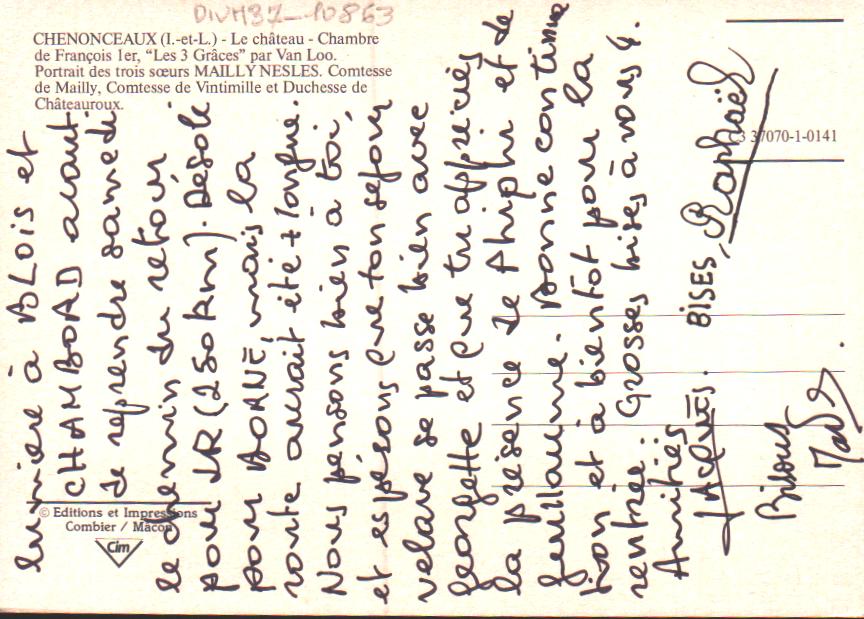 DIVM37-10863
CHENONCEAUX (I.-et-L.) - Le château - Chambre
de François 1er, "Les 3 Grâces" par Van Loo.
Portrait des trois sœurs MAILLY NESLES. Comtesse
de Mailly, Comtesse de Vintimille et Duchesse de
Châteauroux.
C3 37070-1-0141
© Editions et Impressions
Combier / Macon
Cim
lumière à BLOIS et
CHAMBORD avant
de reprendre samedi
le chemin du retour
pour LR (250km). Désolé
pour BORNÉ, mais la
route aurait été + longue.
Nous pensons bien à toi,
et espérons que ton séjour
velave se passe bien avec
Georgette et que tu apprécies
la présence de Philphi et de
Guillaume. Bonne continua
tion et à bientôt pour la
rentrée. Grosses bises à vous 4.
Amitiés
JACQUES.
BISES, Raphaël
Bisous